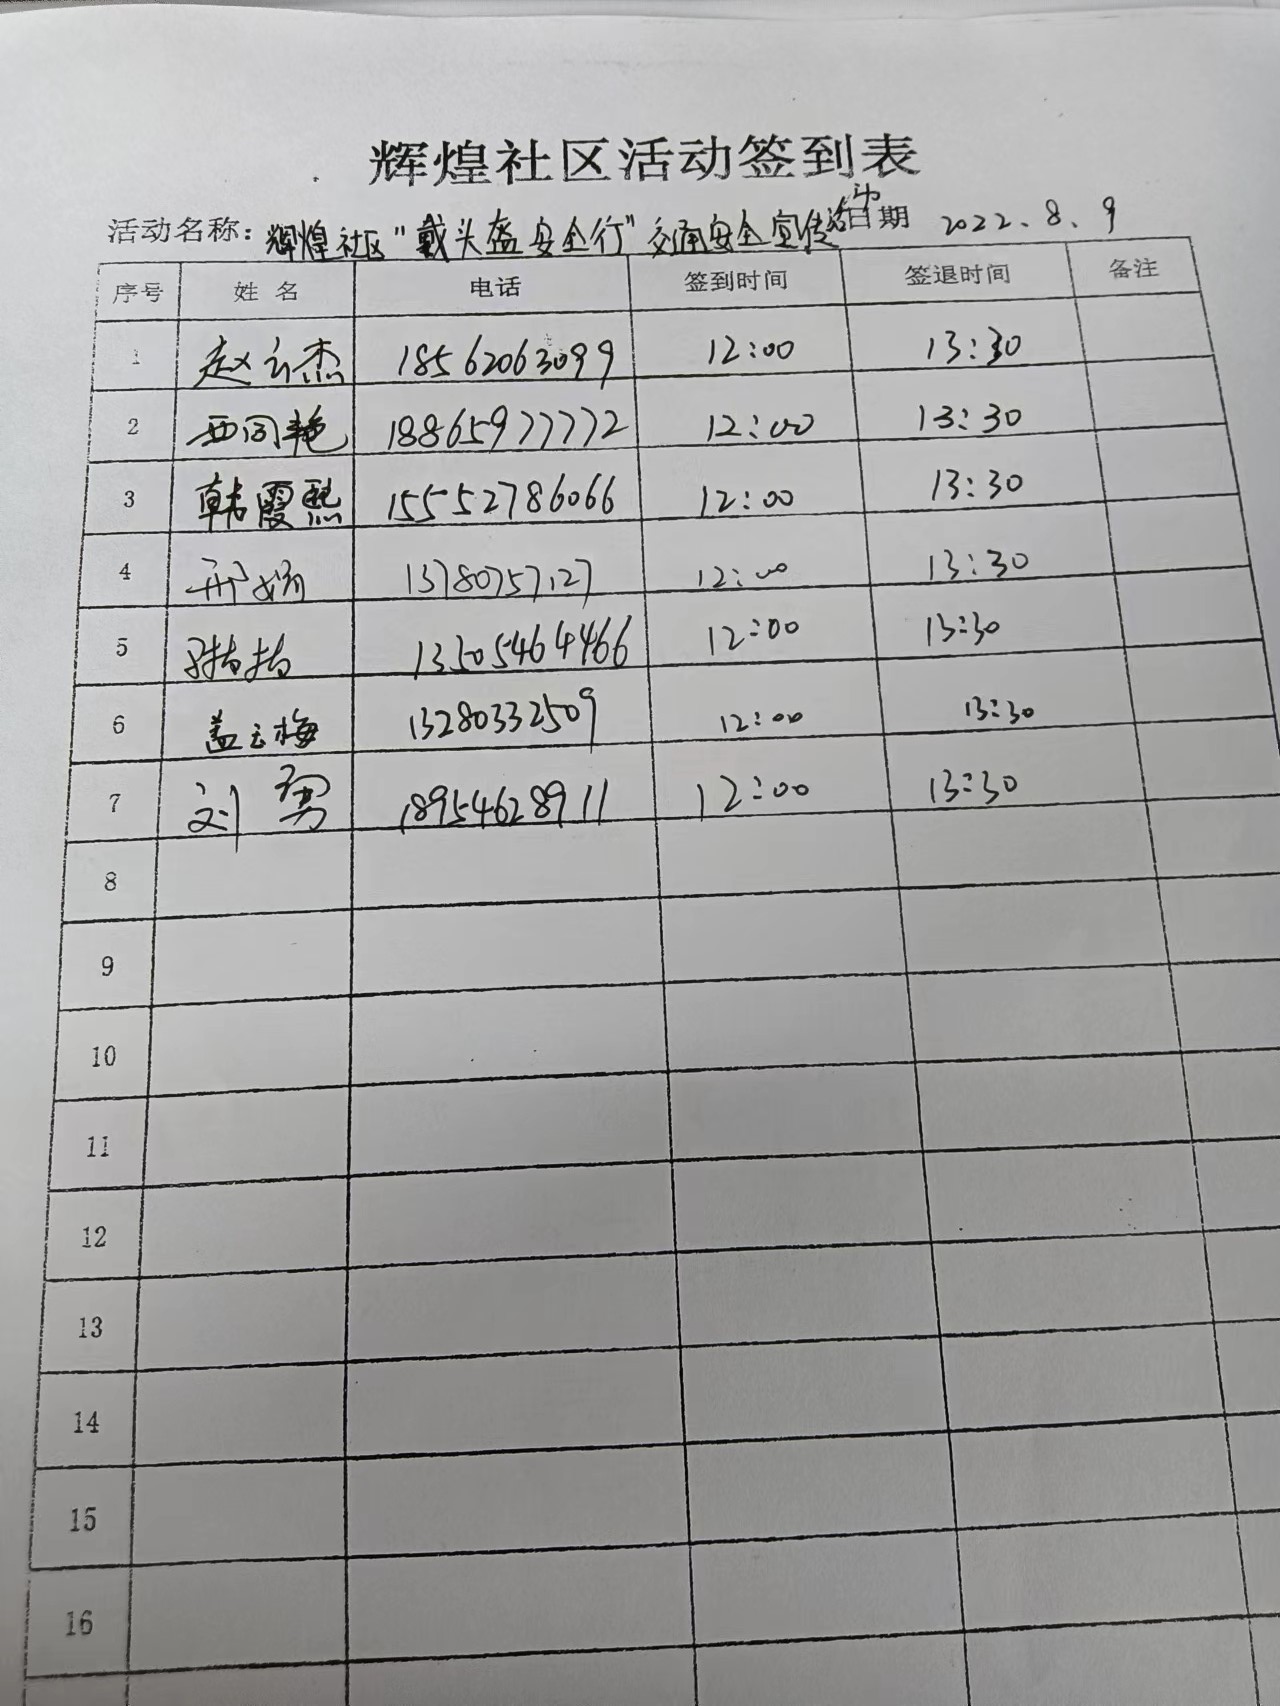 辉煌社区活动签到表
活动名称: 辉煌社区"戴头盔安全行"交通安全宣传活动 日期 2022.8.9
序号 姓名 电话 签到时间 签退时间 备注
1 赵云杰 18562063099 12:00 13:30
2 西同艳 18865977772 12:00 13:30
3 韩霞熙 15552786066 12:00 13:30
4 邢娟 13780757127 12:00 13:30
5 13505464466 12:00 13:30
6 盖云梅 13280332509 12:00 13:30
7 刘勇 18954628911 12:00 13:30
8
9
10
11
12
13
14
15
16